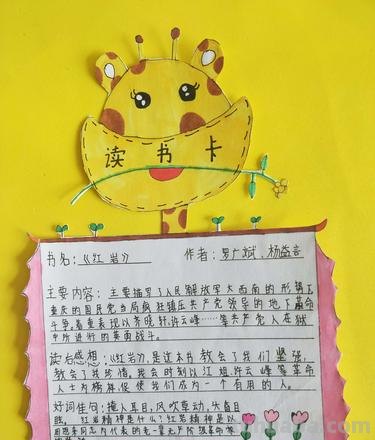 读书卡
书名:《红岩》 作者:罗广斌、杨益言
主要内容:主要描写了人民解放军大西南的形势下
重庆的国民党当局疯狂镇压共产党领导的地下革命
斗争。着重表现以齐晓轩,许云峰……等共产党人在狱
中所进行的英勇战斗。
读后感想:《红岩》,是这本书教会了我们坚强,
教会了我珍惜。我会时刻以江姐,许云峰等革命
人士为榜样,促使我们成为一个有用的人。
好词佳句:撞入耳目,风吹草动,头昏目
眩。红岩精神是什么?红岩精神是以